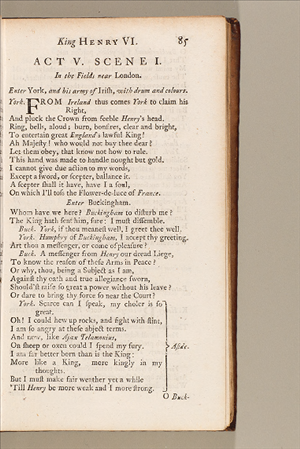 King HENRY VI. 85
ACT V. SCENE I.
In the Fields near London.
Enter York, and his army of Irish, with drum and colours.
York. FROM Ireland thus comes York to claim his
Right,
And pluck the Crown from feeble Henry's head.
Ring, bells, aloud; burn, bonfires, clear and bright,
To entertain great England's lawful King!
Ah Majesty! who would not buy thee dear?
Let them obey, that know not how to rule.
This hand was made to handle nought but gold.
I cannot give due action to my words,
Except a sword, or scepter, ballance it.
A scepter shall it have, have I a soul,
On which I'll toss the Flower-de-luce of France.
Enter Buckingham.
Whom have we here? Buckingham to disturb me?
The King hath sent him, sure: I must dissemble.
Buck. York, if thou meanest well, I greet thee well.
York. Humphry of Buckingham, I accept thy greeting.
Art thou a messenger, or come of pleasure?
Buck. A messenger from Henry our dread Liege,
To know the reason of these Arms in Peace?
Or why, thou, being a Subject as I am,
Against thy oath and true allegiance sworn,
Should'st raise so great a power without his leave?
Or dare to bring thy force so near the Court?
York. Scarce can I speak, my choler is so
great.
Oh! I could hew up rocks, and fight with flint,
I am so angry at these abject terms.
And now, like Ajax Telamonius,
On sheep or oxen could I spend my fury.
I am far better born than is the King:
More like a King, more kingly in my
thoughts.
But I must make fair weather yet a while
'Till Henry be more weak and I more strong.
Aside.
O Buck-